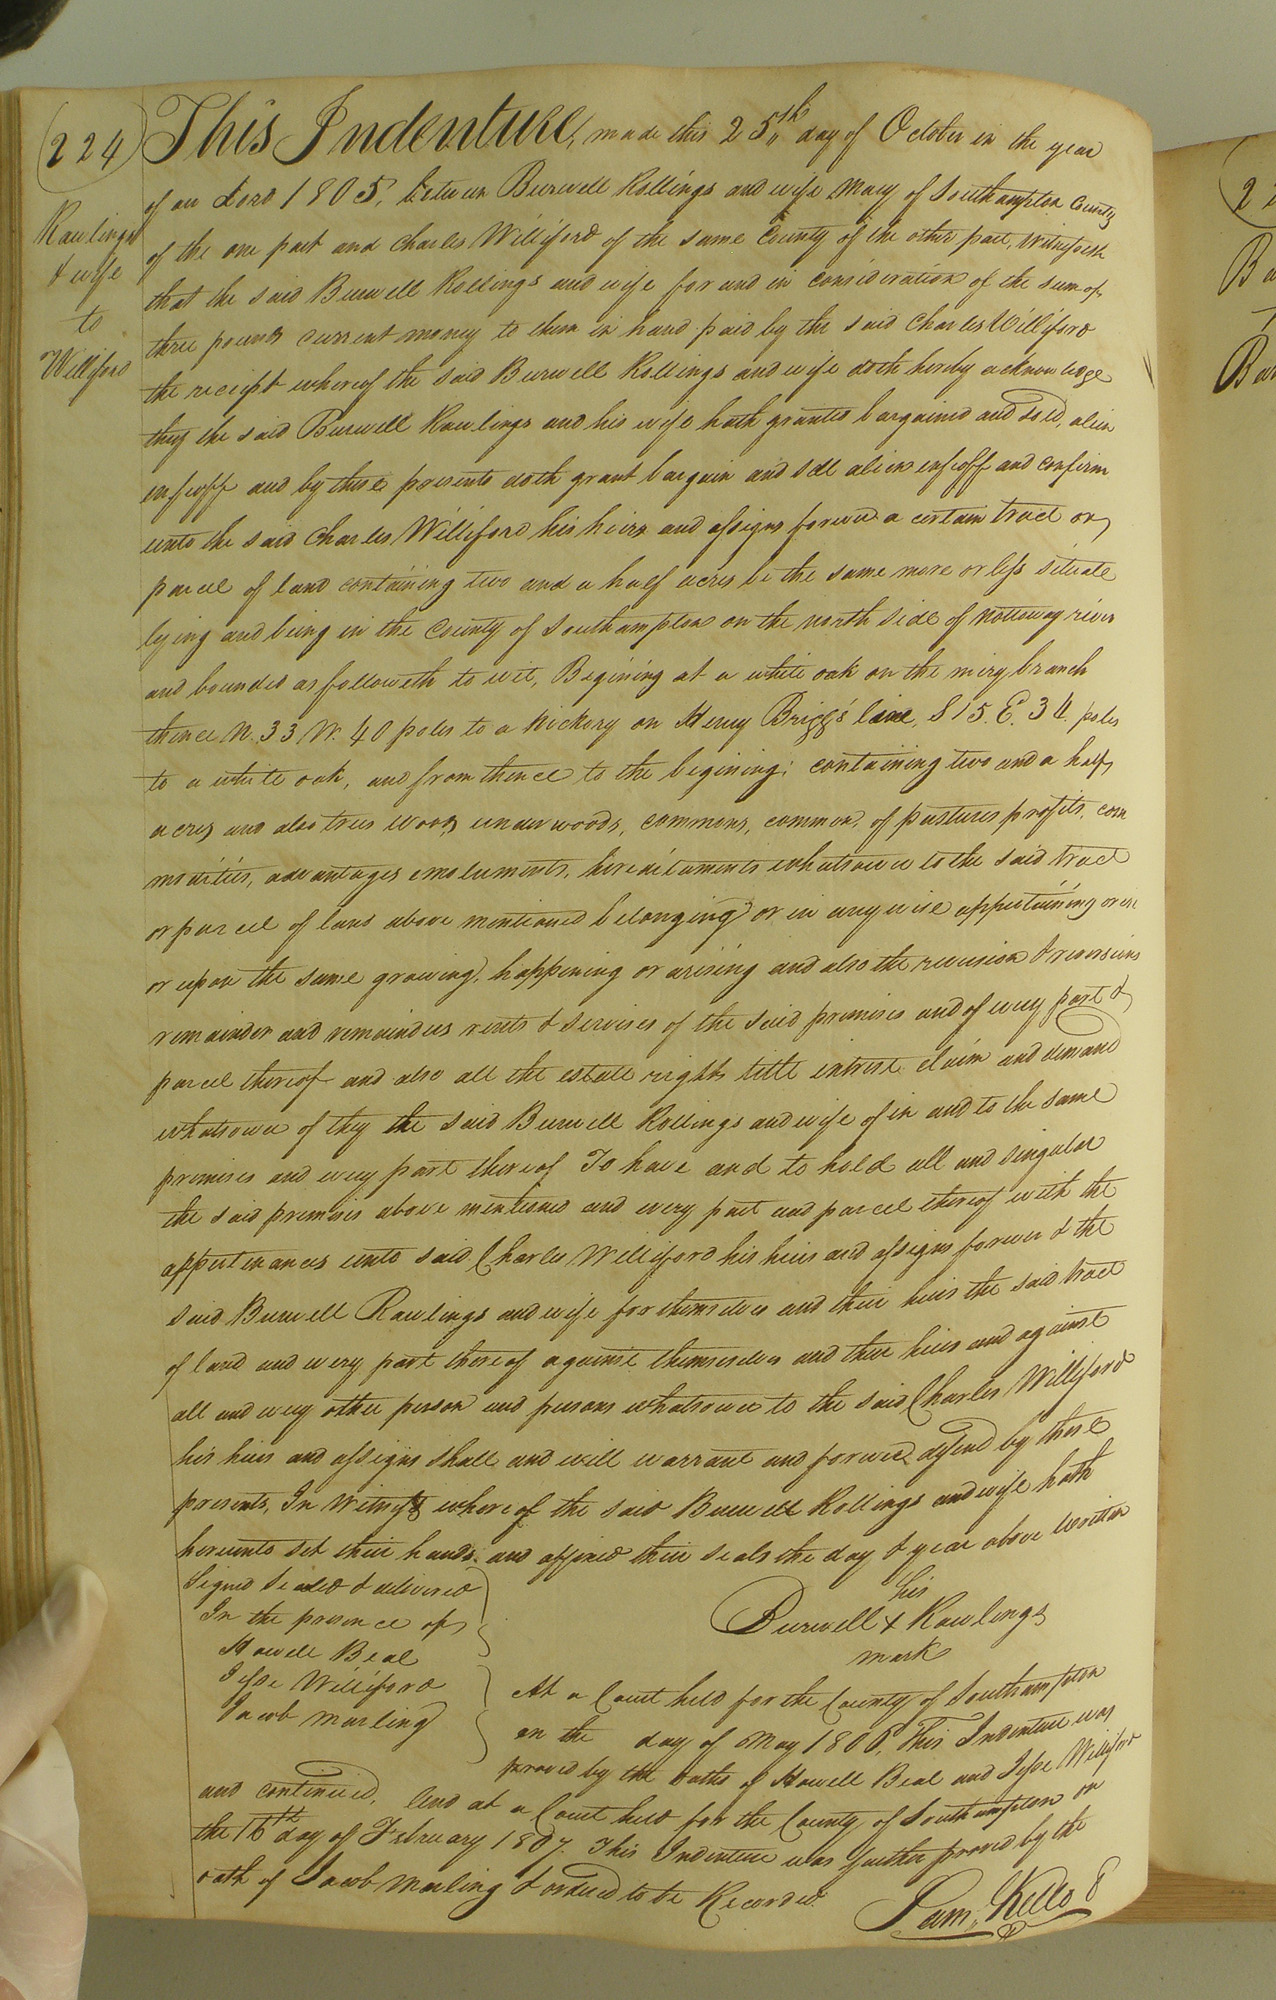 (224)
Rawlings
& wife
to
Williford
This Indenture, made this 25th day of October in the year
of our Lord 1805, between Burwell Rollings and wife Mary of Southampton County
of the one part and Charles Williford of the same County of the other part, Witnesseth
that the said Burwell Rollings and wife for and in consideration of the sum of
three pounds current money to them in hand paid by the said Charles Williford
the receipt whereof the said Burwell Rollings and wife doth hereby acknowledge
they the said Burwell Rawlings and his wife hath granted bargained and sold, alien
enfeoff and by these presents doth grant bargain and sell alien enfeoff and confirm
unto the said Charles Williford his heirs and assigns forever a certain tract or
parcel of land containing two and a half acres be the same more or less situate
lying and being in the County of Southampton on the north side of Nottoway river
and bounded as followeth to wit, Begining at a white oak on the miry branch
thence N. 33 W. 40 poles to a hickory on Henry Briggs' line, S 15. E. 34 poles
to a white oak, and from thence to the begining; containing two and a half
acres and also trees woods, underwoods, commons, common, of pastures profits, com
modities, advantages emoluments, hereditaments whatsoever to the said tract
or parcel of land above mentioned belonging or in any wise appertaining or in
or upon the same growing, happening or arising and also the revision & reversions
remainder and remainders rents & services of the said premises and of every part &
parcel thereof and also all the estate right title interest claim and demand
whatsoever of they the said Burwell Rollings and wife of in and to the same
premises and every part thereof To have and to hold all and singular
the said premises above mentioned and every part and parcel thereof with the
appurtenances unto said Charles Williford his heirs and assigns forever & the
said Burwell Rawlings and wife for themselves and their heirs the said tract
of land and every part thereof against themselves and their heirs and against
all and every other person and persons whatsoever to the said Charles Williford
his heirs and assigns shall and will warrant and forever defend by these
presents, In Witness whereof the said Burwell Rollings and wife hath
hereunto set their hands and affixed their seals the day & year above written
Signed Sealed & delivered
In the presence of
Howell Beal
Jesse Williford
Jacob Marling
his
Burwell + Rawlings
mark
At a Court held for the County of Southampton
on the day of May 1806, This Indenture was
proved by the oaths of Howell Beal and Jesse Williford
and continued, And at a Court held for the County of Southampton on
the 16th day of February 1807. This Indenture was further proved by the
oath of Jacob Marling & ordered to be Recorded.
Sam, Kello